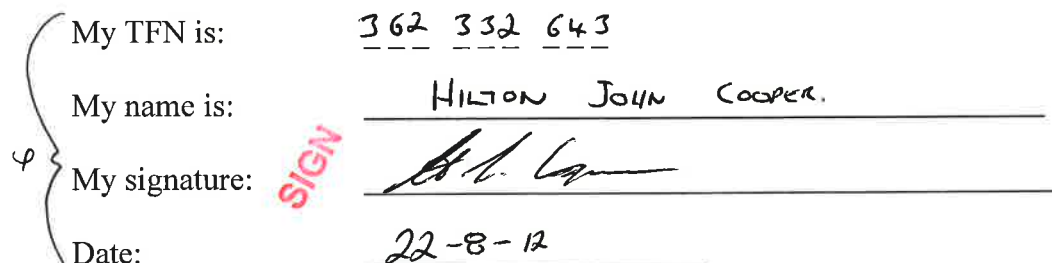 My TFN is: 362 332 643
My name is: HILTON JOHN COOPER.
SIGN
My signature:
Date: 22-8-12